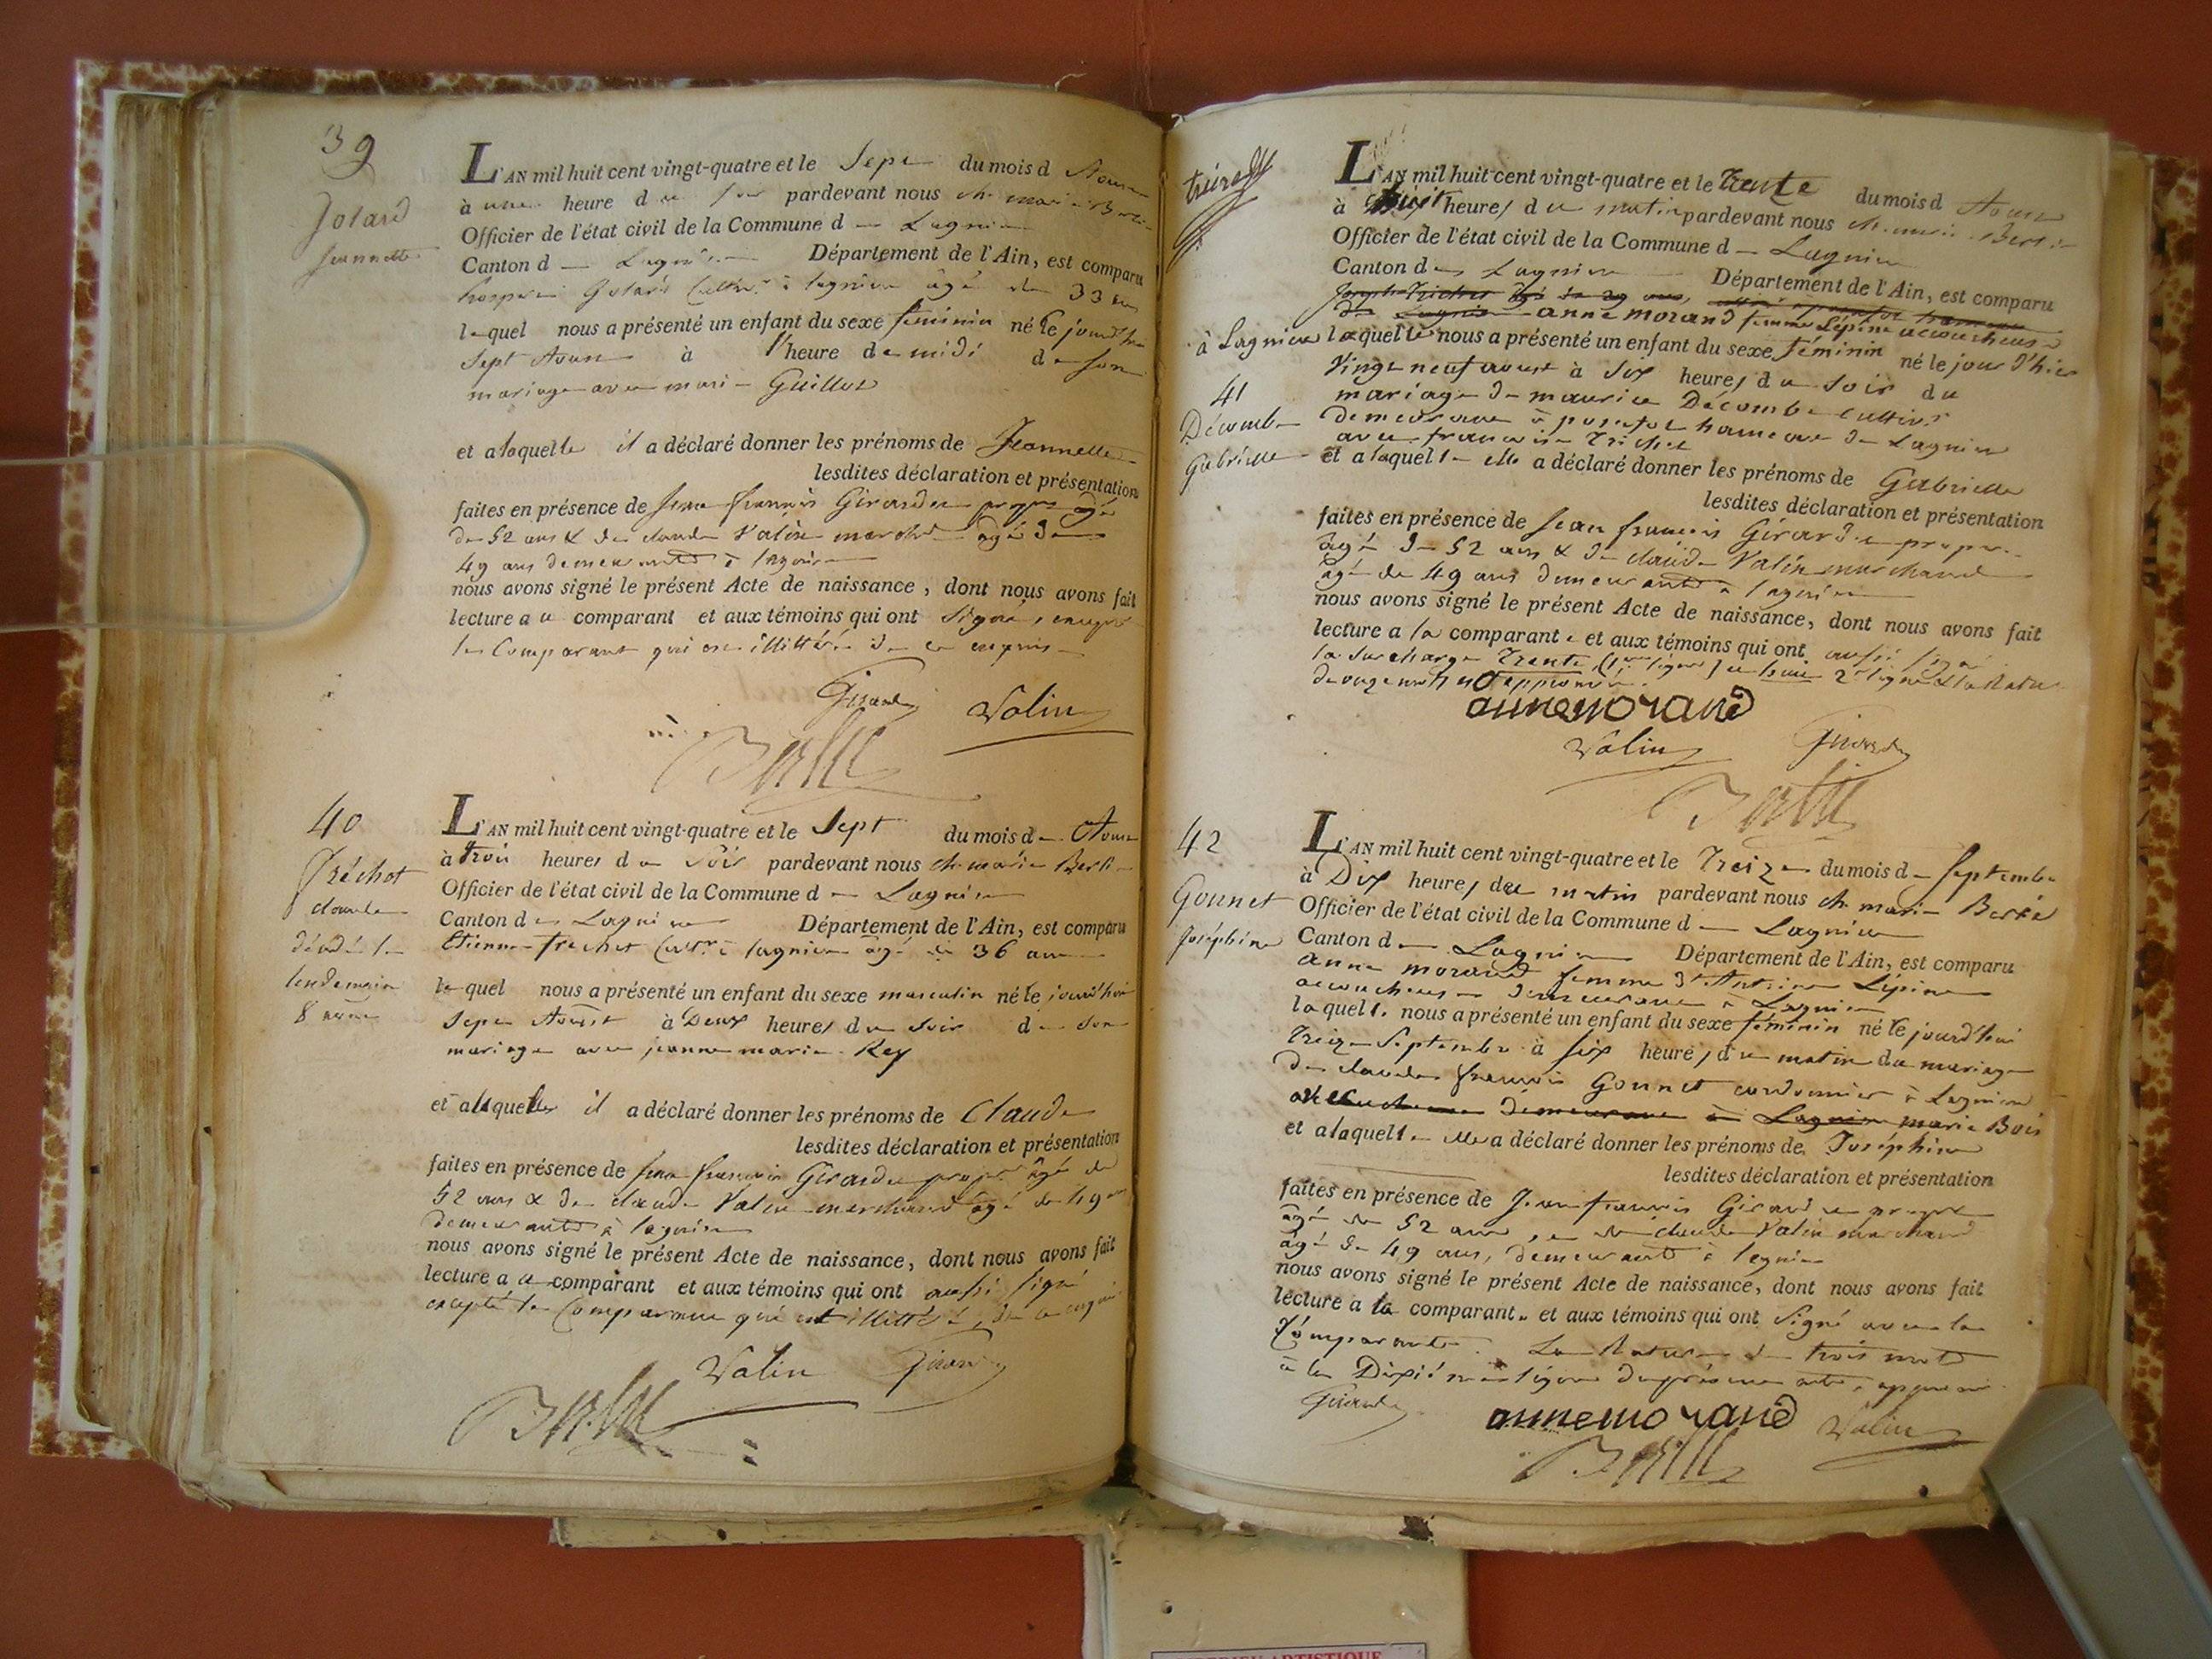 39
Jolard
Jeannette
L'AN mil huit cent vingt-quatre et le Sept du mois d'Aoust
à une heure du soir pardevant nous ch. marie Berlie
Officier de l'état civil de la Commune de Lagnieu
Canton de Lagnieu Département de l'Ain, est comparu
Jolard Cultr à lagnieu âgé de 33 ans
lequel nous a présenté un enfant du sexe féminin né le jourd'hui
Sept Aoust à 1 heure de midi de son
mariage avec marie Guillot
et a laquelle il a déclaré donner les prénoms de Jeannette
lesdites déclaration et présentation
faites en présence de jean françois Girard propre âgé
de 52 ans & de claude Valin marchd âgé de
49 ans demeurants à lagnieu
nous avons signé le présent Acte de naissance, dont nous avons fait
lecture au comparant et aux témoins qui ont Signé, excepté
le Comparant qui est illittéré de ce enquis
Girard Valin
40
Tréchot
claude
décédé le
lendemain
8
L'AN mil huit cent vingt-quatre et le Sept du mois d'Aoust
à trois heures du Soir pardevant nous ch. marie Berlie
Officier de l'état civil de la Commune de Lagnieu
Canton de Lagnieu Département de l'Ain, est comparu
Etienne trechot Cultr à lagnieu âgé de 36 ans
lequel nous a présenté un enfant du sexe masculin né le jourd'hui
Sept Aoust à Deux heures du Soir de son
mariage avec jeanne marie Rey
et auquel il a déclaré donner les prénoms de Claude
lesdites déclaration et présentation
faites en présence de jean françois Girard propre âgé de
52 ans & de claude Valin marchand âgé de 49 ans
demeurants à lagnieu
nous avons signé le présent Acte de naissance, dont nous avons fait
lecture au comparant et aux témoins qui ont aussi signé
excepté le Comparant qui est illittéré, de ce enquis
Valin Girard
L'AN mil huit cent vingt-quatre et le trente du mois d'Aoust
à huit heures du matin pardevant nous ch. marie Berlie
Officier de l'état civil de la Commune de Lagnieu
Canton de Lagnieu Département de l'Ain, est comparu
anne morand femme Lépine accoucheuse
à Lagnieu laquelle nous a présenté un enfant du sexe féminin né le jour d'hier
41
Décombe
Gabrielle
Vingt neuf aoust à Six heures du Soir du
mariage de maurice Décombe cultivr
demeurant à hameau de Lagnieu
avec françoise Trichot
et a laquelle elle a déclaré donner les prénoms de Gabrielle
lesdites déclaration et présentation
faites en présence de jean françois Girard propre
âgé de 52 ans & de claude Valin marchand
âgé de 49 ans demeurants à lagnieu
nous avons signé le présent Acte de naissance, dont nous avons fait
lecture a la comparante et aux témoins qui ont aussi signé
la surcharge trente (1ere ligne) et huit 2e ligne & la Rature
de onze mots est approuvée
anne morand
Valin Girard
42
Gonnet
Joséphine
L'AN mil huit cent vingt-quatre et le Treize du mois de Septembre
à Dix heures du matin pardevant nous ch. marie Berlié
Officier de l'état civil de la Commune de Lagnieu
Canton de Lagnieu Département de l'Ain, est comparu
anne morand femme d'Antoine Lépine
accoucheuse demeurant à Lagnieu
laquelle nous a présenté un enfant du sexe féminin né le jourd'hui
Treize Septembre à Six heures du matin du mariage
de claude françois Gonnet cordonnier à Lagnieu
avec demeurant à Lagnieu marie Bois
et a laquelle elle a déclaré donner les prénoms de Joséphine
lesdites déclaration et présentation
faites en présence de Jean francois Girard propre
âgé de 52 ans, et de claude Valin marchand
âgé de 49 ans, demeurants à lagnieu
nous avons signé le présent Acte de naissance, dont nous avons fait
lecture a la comparante et aux témoins qui ont Signé avec la
Comparante. La Rature de trois mots
à la Dixième ligne du présent acte, approuvée
Girard anne morand Valin